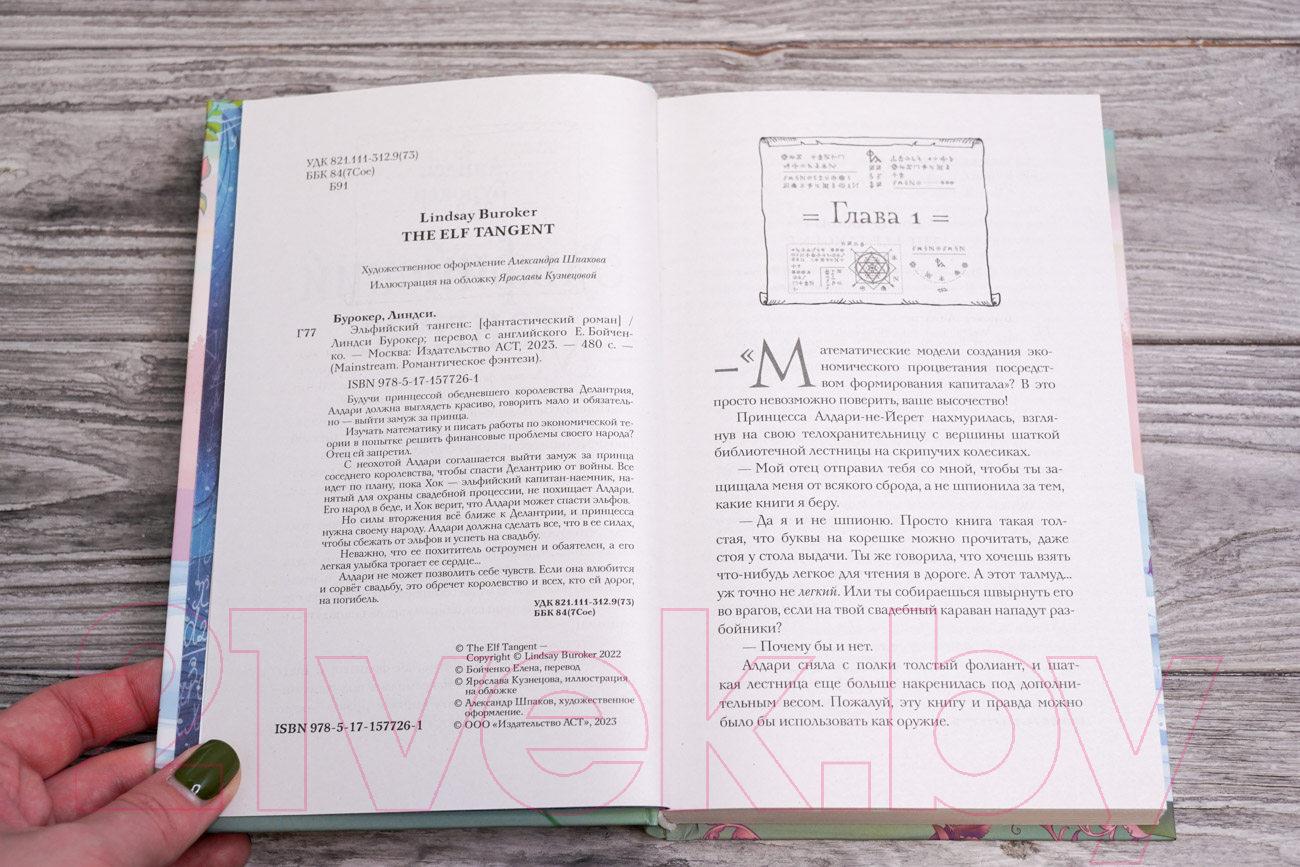 УДК 821.111-312.9(73)
ББК 84(7Сое)
Б91
Lindsay Buroker
THE ELF TANGENT
Художественное оформление Александра Шпакова
Иллюстрация на обложку Ярославы Кузнецовой
Бурокер, Линдси.
Г77 Эльфийский тангенс: [фантастический роман] /
Линдси Бурокер; перевод с английского Е. Бойчен-
ко. — Москва: Издательство АСТ, 2023. — 480 с. —
(Mainstream. Романтическое фэнтези).
ISBN 978-5-17-157726-1
Будучи принцессой обедневшего королевства Делантрия,
Алдари должна выглядеть красиво, говорить мало и обязатель-
но — выйти замуж за принца.
Изучать математику и писать работы по экономической те-
ории в попытке решить финансовые проблемы своего народа?
Отец ей запретил.
С неохотой Алдари соглашается выйти замуж за принца
соседнего королевства, чтобы спасти Делантрию от войны. Все
идет по плану, пока Хок — эльфийский капитан-наемник, на-
нятый для охраны свадебной процессии, не похищает Алдари.
Его народ в беде, и Хок верит, что Алдари может спасти эльфов.
Но силы вторжения всё ближе к Делантрии, и принцесса
нужна своему народу. Алдари должна сделать все, что в ее силах,
чтобы сбежать от эльфов и успеть на свадьбу.
Неважно, что ее похититель остроумен и обаятелен, а его
легкая улыбка трогает ее сердце...
Алдари не может позволить себе чувств. Если она влюбится
и сорвёт свадьбу, это обречет королевство и всех, кто ей дорог,
на погибель.
УДК 821.111-312.9(73)
ББК 84(7Сое)
© The Elf Tangent —
Copyright © Lindsay Buroker 2022
© Бойченко Елена, перевод
© Ярослава Кузнецова, иллюстрация
на обложке
© Александр Шпаков, художественное
оформление.
© ООО «Издательство АСТ», 2023
ISBN 978-5-17-157726-1
= Глава 1 =
— «Математические модели создания эко-
номического процветания посредст-
вом формирования капитала»? В это
просто невозможно поверить, ваше высочество!
Принцесса Алдари-не-Йерет нахмурилась, взгля-
нув на свою телохранительницу с вершины шаткой
библиотечной лестницы на скрипучих колесиках.
— Мой отец отправил тебя со мной, чтобы ты за-
щищала меня от всякого сброда, а не шпионила за тем,
какие книги я беру.
— Да я и не шпионю. Просто книга такая тол-
стая, что буквы на корешке можно прочитать, даже
стоя у стола выдачи. Ты же говорила, что хочешь взять
что-нибудь легкое для чтения в дороге. А этот талмуд...
уж точно не легкий. Или ты собираешься швырнуть его
во врагов, если на твой свадебный караван нападут раз-
бойники?
— Почему бы и нет.
Алдари сняла с полки толстый фолиант, и шат-
кая лестница еще больше накренилась под дополни-
тельным весом. Пожалуй, эту книгу и правда можно
было бы использовать как оружие.
21vek.by